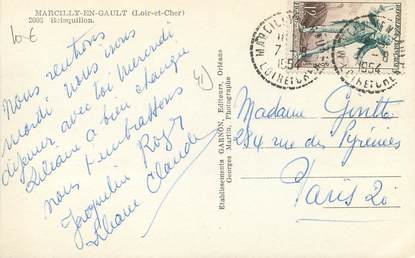 MARCILLY-EN-GAULT (Loir-et-Cher)
2003 Boisquillon.
10€
Nous rentrons
mardi. Nous irons
déjeuner avec toi mercredi
Liliane a bien changé
nous t'embrassons
Jacqueline Roger
Liliane Claude
41
Etablissements GARNON, Editeurs, Orléans
Georges Martin, Photographe
MARCILLY
1954
LOIR-ET-CHER
12F
1954
Madame
284 rue des Pyrénées
Paris 20